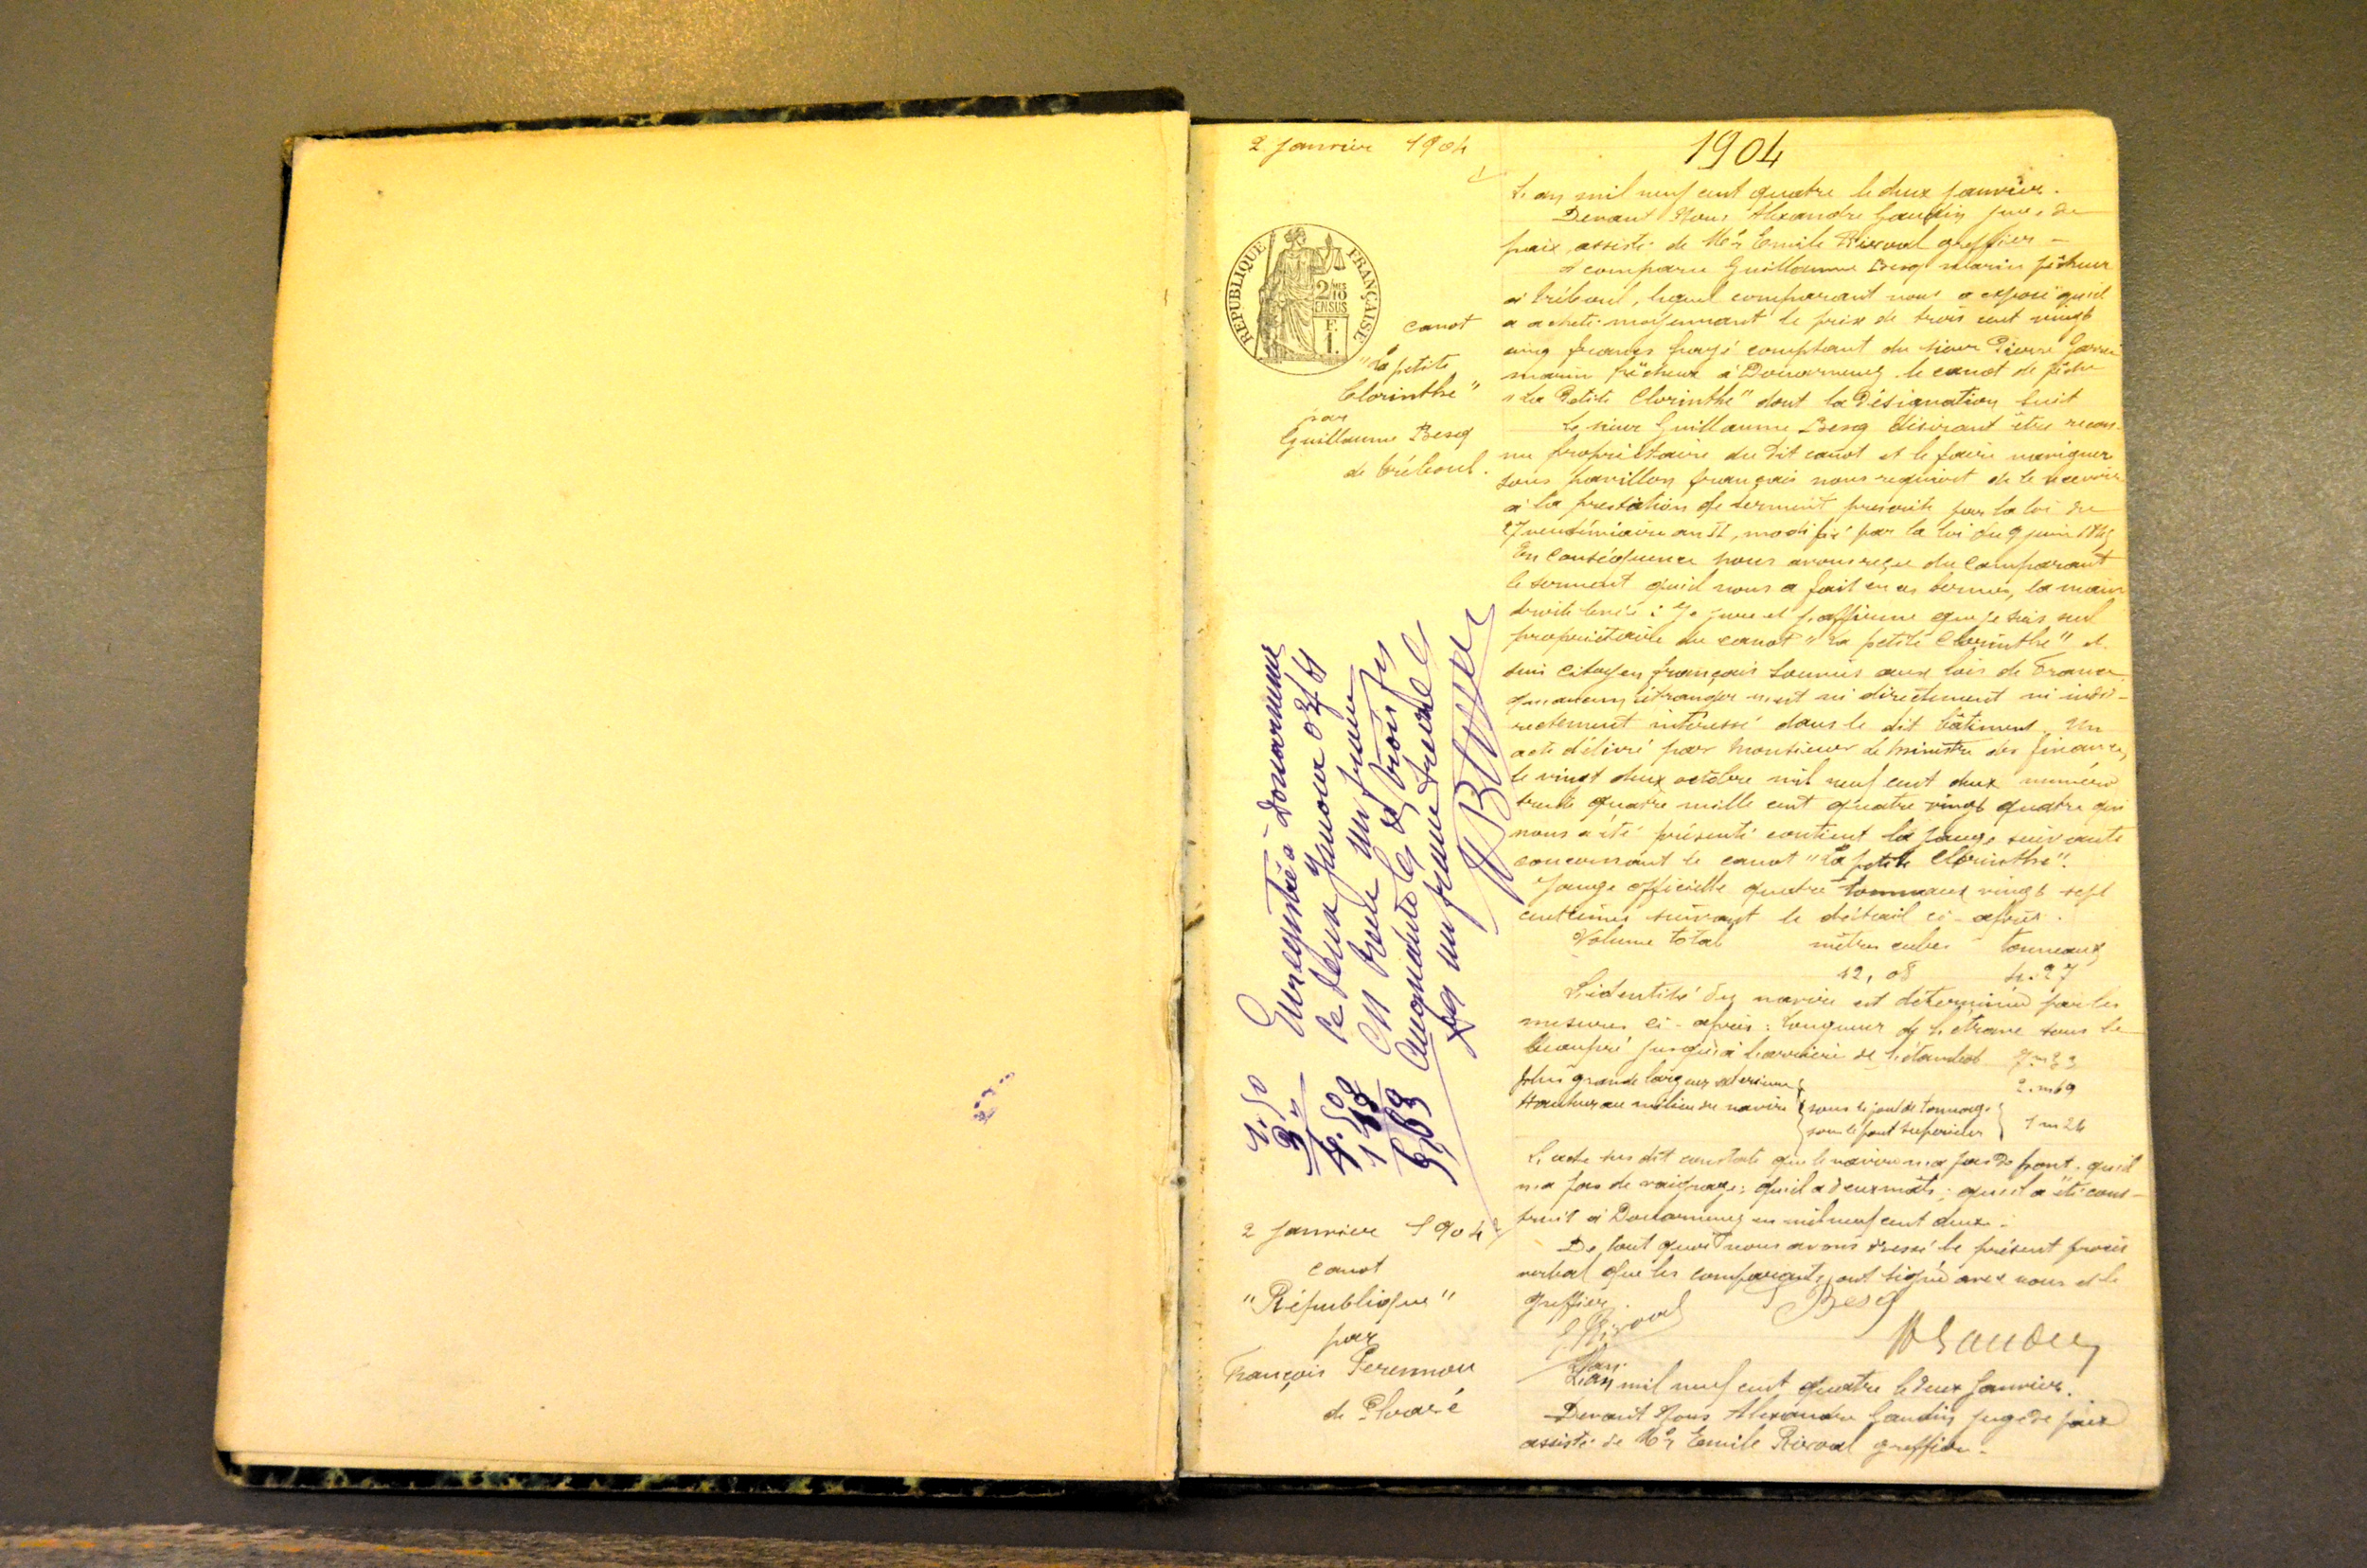 2 janvier 1904
1904
REPUBLIQUE FRANÇAISE
2/10
EN SUS
F.
1.
canot
"La petite
Clorinthe"
par
Guillaume Besq
de Tréboul.
L'an mil neuf cent quatre le deux janvier.
Devant Nous Alexandre Gaudin juge de
paix assisté de Me Emile Rivoal greffier -
A comparu Guillaume Besq marin pêcheur
à Tréboul, lequel comparant nous a exposé qu'il
a acheté moyennant le prix de trois cent vingt
cinq francs payé comptant du sieur Pierre
marin pêcheur à Douarnenez le canot de pêche
"La Petite Clorinthe" dont la désignation suit
Le sieur Guillaume Besq désirant être recon-
nu propriétaire du dit canot et le faire naviguer
sous pavillon français nous requiert de le recevoir
à la prestation de serment prescrite par la loi du
27 vendémiaire an II, modifié par la loi du 9 juin 1845
En conséquence nous avons reçu du comparant
le serment qu'il nous a fait en ces termes, la main
droite levée : Je jure et j'affirme que je suis seul
propriétaire du canot "La petite Clorinthe" et
suis citoyen français soumis aux lois de France
qu'aucun étranger n'est ni directement ni indi-
rectement intéressé dans le dit bâtiment. Un
acte délivré par Monsieur le Ministre des finances,
le vingt deux octobre mil neuf cent deux numéro
trente quatre mille cent quatre vingt quatre qui
nous a été présenté contient la jauge suivante
concernant le canot "La petite Clorinthe".
Jauge officielle quatre tonneaux vingt sept
centièmes suivant le détail ci-après.
Volume total mètres cubes tonneaux
12,08 4.27
L'identité du navire est déterminée par les
mesures ci-après : longueur de l'étrave sous le
beaupré jusqu'à l'arrière de l'étambot
plus grande largeur extérieure 2.m69
Hauteur au milieu du navire { sous le pont de tonnage
sous le pont supérieur } 1m24
L'acte sus dit constate que le navire n'a pas de pont, qu'il
n'a pas de vaigrage; qu'il a deux mâts; qu'il a été cons-
truit à Douarnenez en mil neuf cent deux.
De tout quoi nous avons dressé le présent procès
verbal que les comparants ont signé avec nous et le
greffier.
Besq
E Rivoal
AGaudin
Enregistré à Douarnenez
le deux janvier 04
un franc
un franc
1.50
3"
4.50
2 janvier 1904
canot
"République"
par
François Perennou
de Ploaré
L'an
L'an mil neuf cent quatre le deux janvier.
Devant Nous Alexandre Gaudin juge de paix
assisté de Me Emile Rivoal greffier -